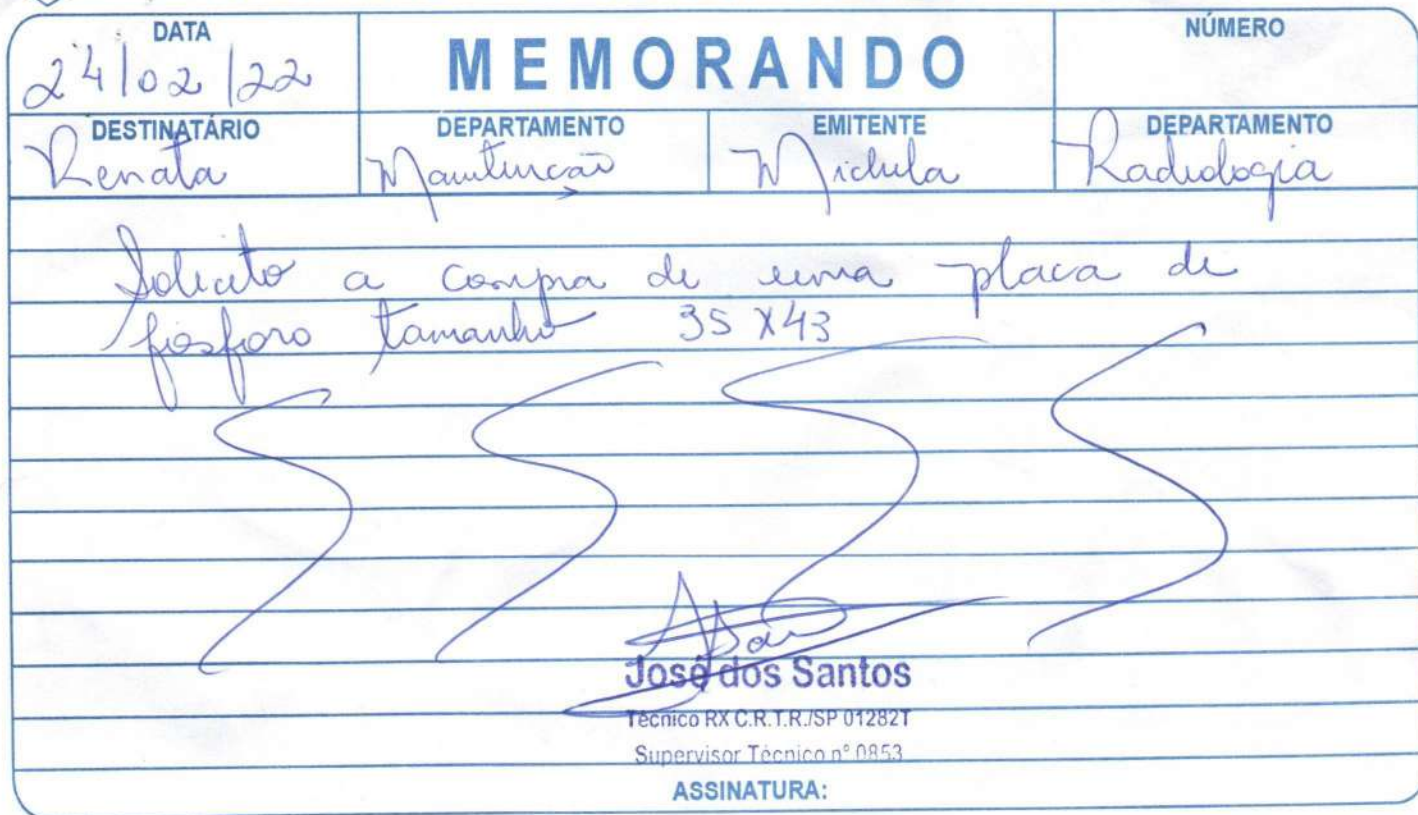 DATA
24/02/22
MEMORANDO
NÚMERO
DESTINATÁRIO
Renata
DEPARTAMENTO
Manutenção
EMITENTE
Michela
DEPARTAMENTO
Radiologia
Solicito a compra de uma placa de
fósforo tamanho 35X43
José dos Santos
Técnico RX C.R.T.R./SP 01282T
Supervisor Técnico nº 0853
ASSINATURA: